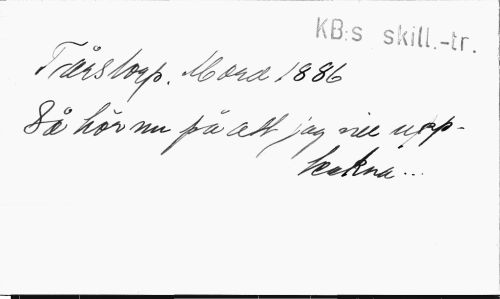 KB:s skill.-tr.
Tårstorp. Mord 1886
Så hör nu på att jag vill upp-
teckna...